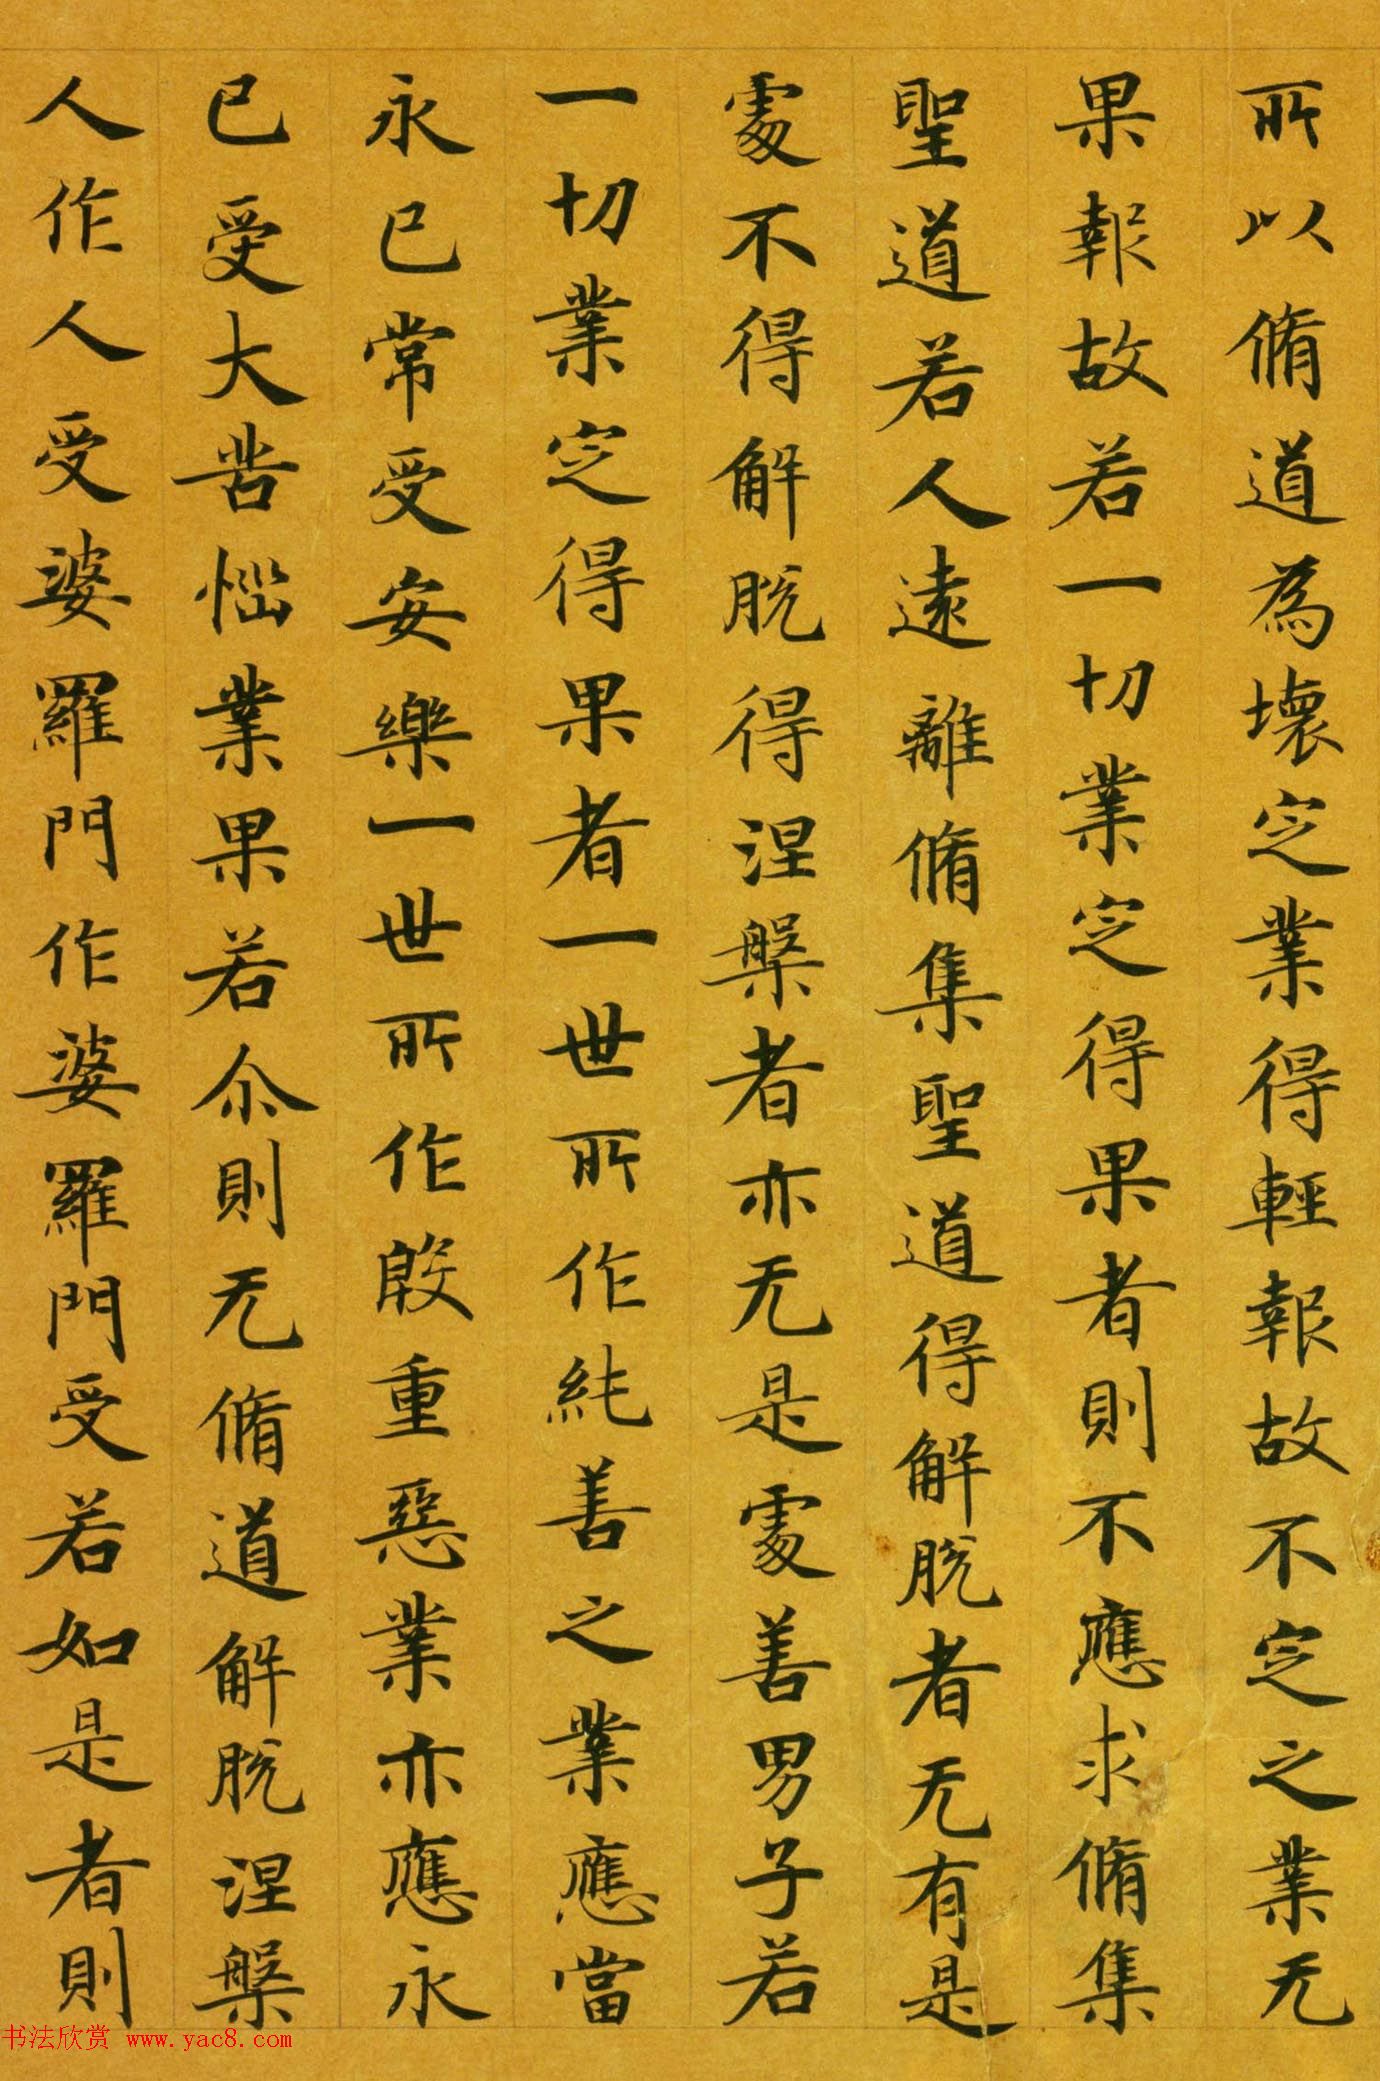 所以脩道為壞定業得輕報故不定之業无
果報故若一切業定得果者則不應求脩集
聖道若人遠離脩集聖道得解脫者无有是
處不得解脫得涅槃者亦无是處善男子若
一切業定得果者一世所作純善之業應當
永已常受安樂一世所作殷重惡業亦應永
已受大苦惱業果若尒則无脩道解脫涅槃
人作人受婆羅門作婆羅門受若如是者則
书法欣赏 www.yac8.com